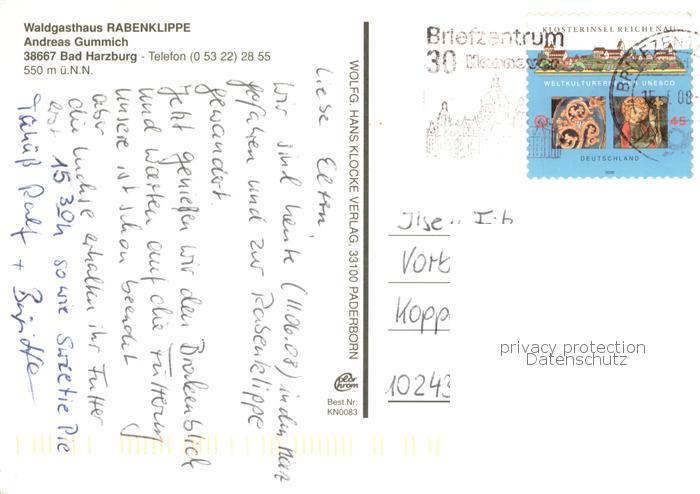 Waldgasthaus RABENKLIPPE
Andreas Gummich
38667 Bad Harzburg - Telefon (0 53 22) 28 55
550 m ü.N.N.
Liebe Eltern,
Wir sind heute (11.06.08) in den Harz
gefahren und zur Rabenklippe
gewandert.
Jetzt genießen wir den Brockenblick
und warten auf die Fütterung
unsere ist schon beendet
aber
die Luchse erhalten ihr Futter
erst 15 30h sowie Sweetie Pie
Tschüß Ralf + Brigitte
WOLFG. HANS KLOCKE VERLAG, 33100 PADERBORN
Best.Nr.:
KN0083
Briefzentrum
30
BRIEFZEN
08
KLOSTERINSEL REICHENAU
WELTKULTURERBE UNESCO
45
DEUTSCHLAND
2008
Ilse
Vorb
Kopp
10243
privacy protection
Datenschutz